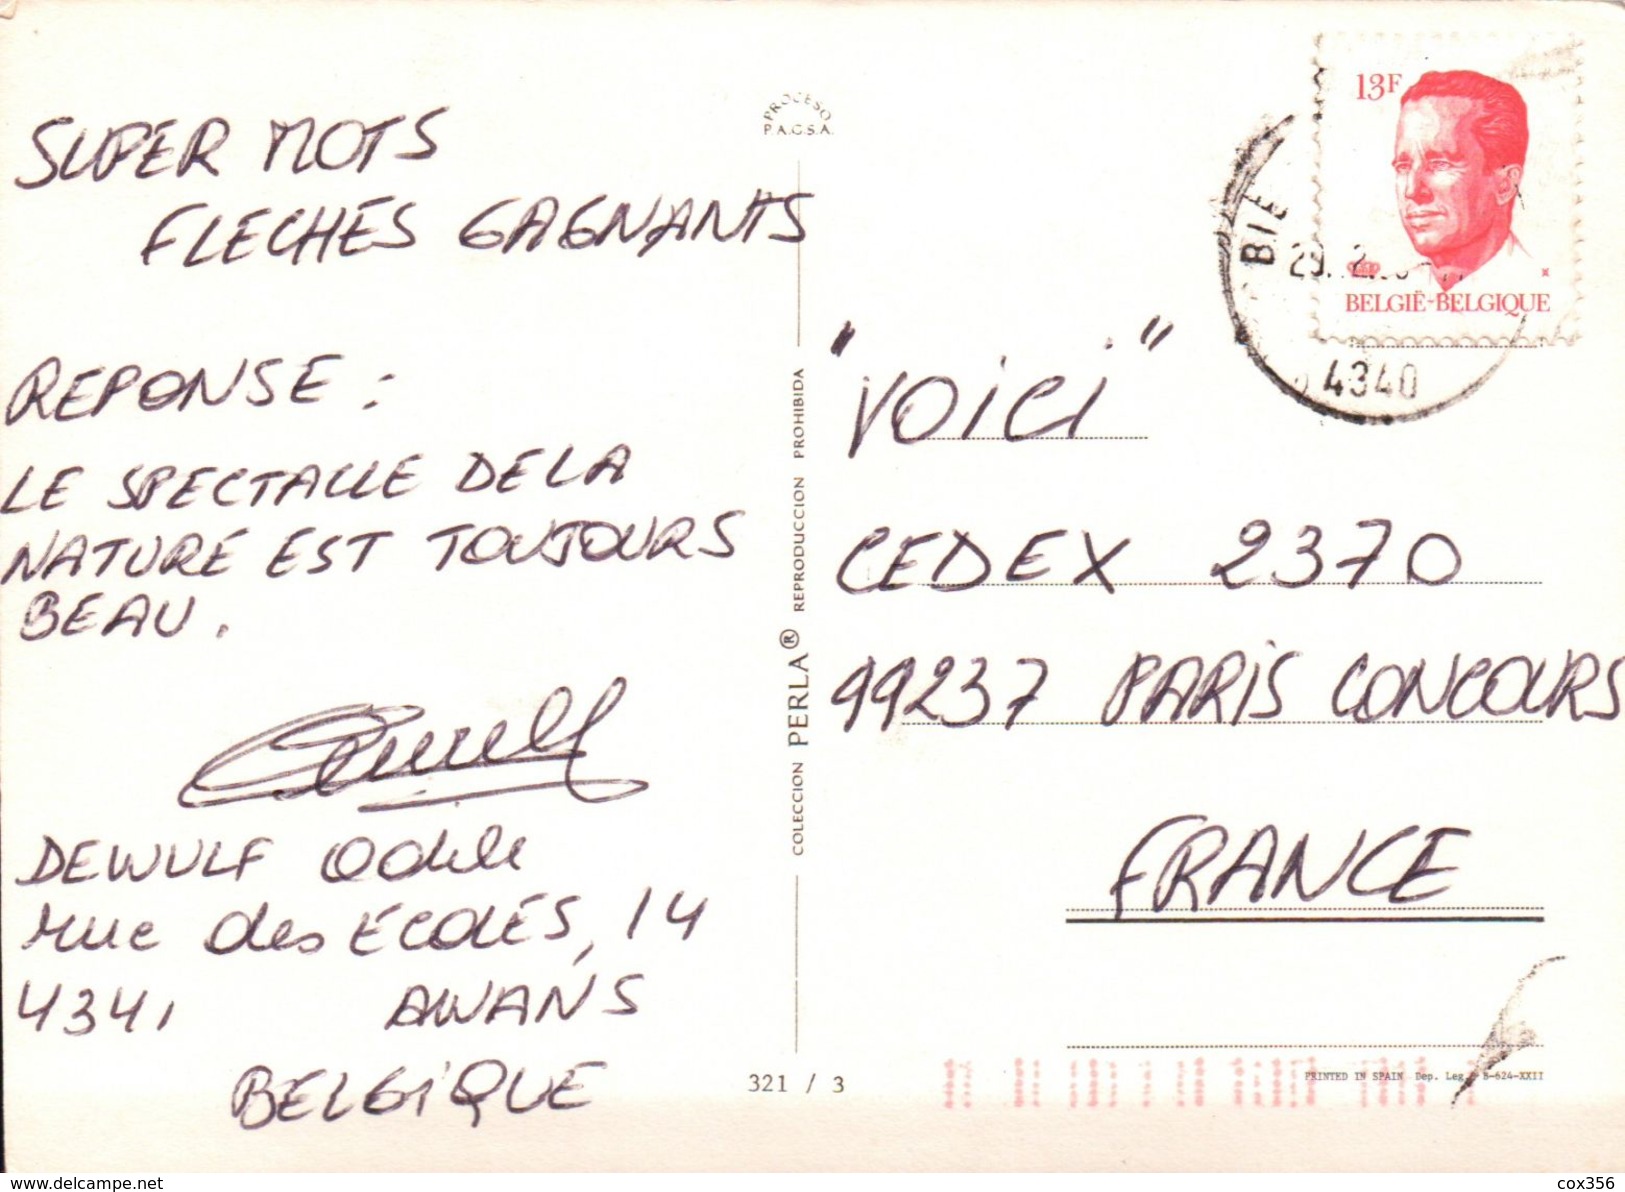 SUPER MOTS
FLECHES GAGNANTS
REPONSE :
LE SPECTACLE DE LA
NATURE EST TOUJOURS
BEAU.
DEWULF Odile
rue des ECOLES, 14
4341 AWANS
BELGIQUE
PROCESO
P.A.G.S.A.
COLECCION PERLA® REPRODUCCION PROHIBIDA
321 / 3
13F
BELGIË-BELGIQUE
4340
"VOICI"
CEDEX 2370
99237 PARIS CONCOURS
FRANCE
PRINTED IN SPAIN Dep. Leg. B-624-XXII
delcampe.net
cox356